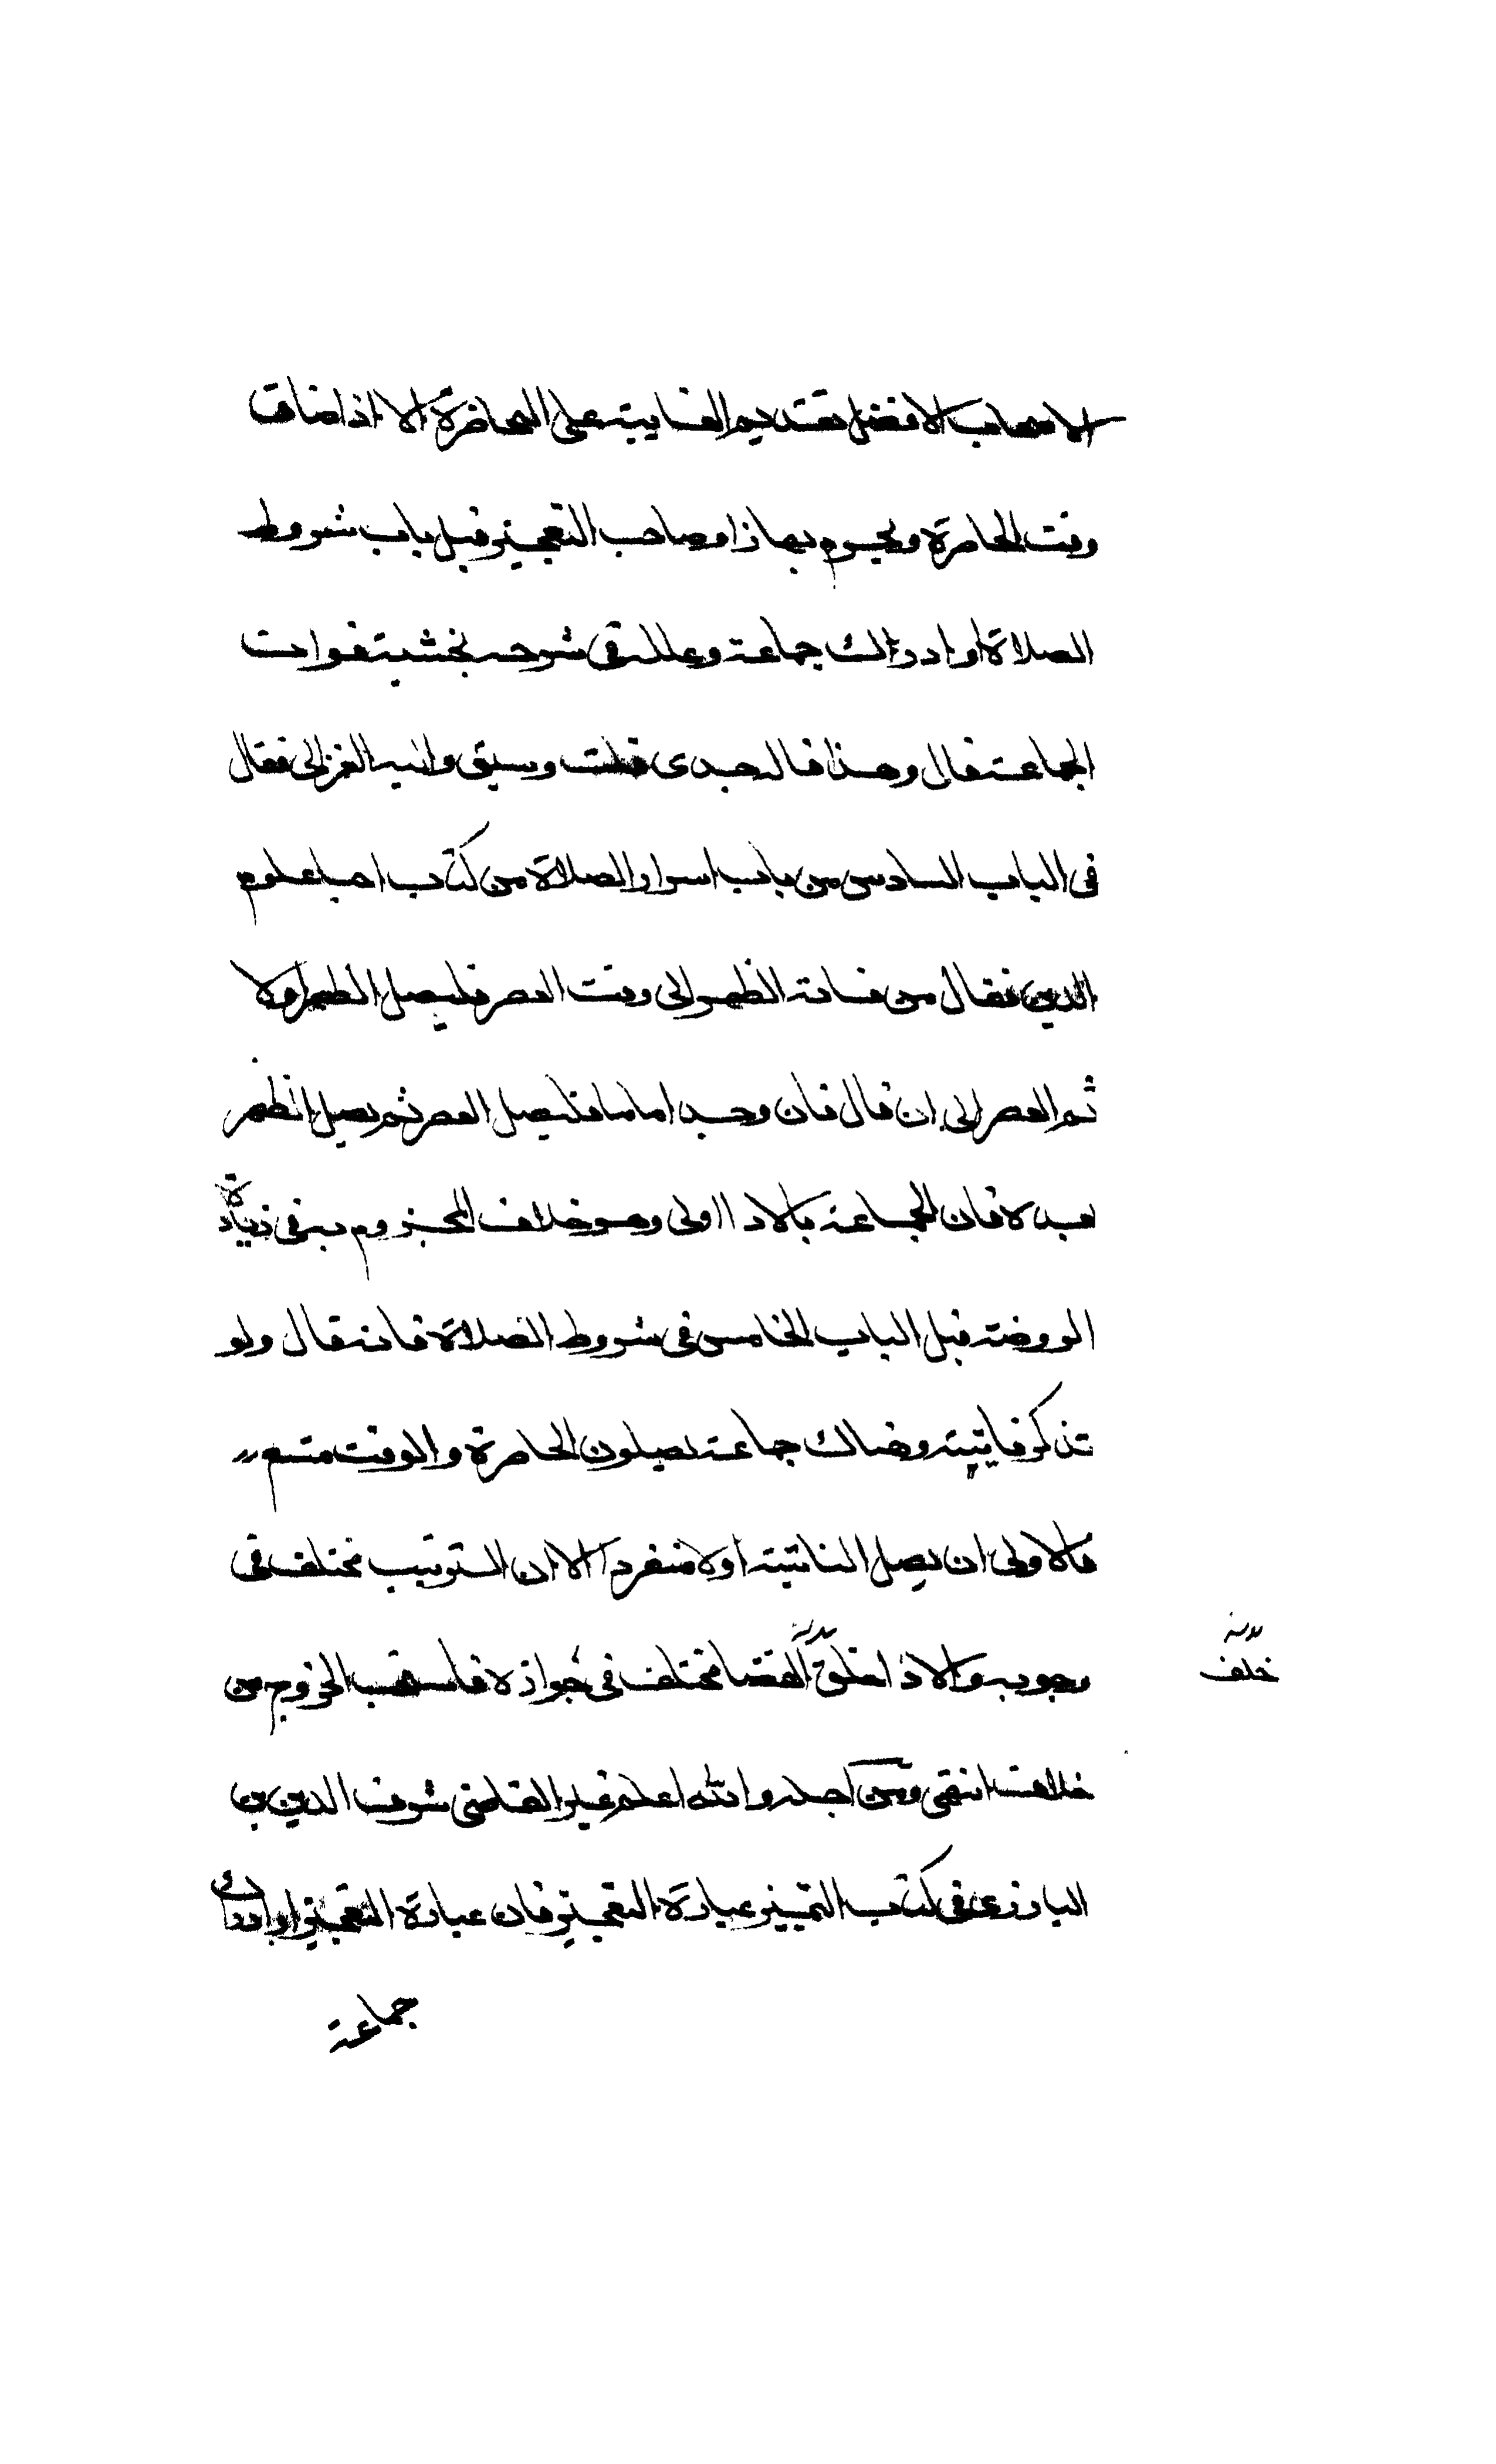 الاصحاب الافضل تقديم الفايتة على الحاضرة الا اذا ضاق
وقت الحاضرة وبجزم بهاذا صاحب التعجيز قبل باب شروط
الصلاة او ادراك جماعة وعلله في شرحه بخشية فوات
الجماعة قال وهذا قاله جدى قلت وسبق والده الغزالى فقال
في الباب السادس من باب اسرار الصلاة من كتاب احيا علوم
الدين فقال من فاتته الظهر الى وقت العصر فليصل الظهر اولا
ثم العصر الى ان قال فان وجد اماما فليصل العصر ثم يصل الظهر
بعده لان الجماعة بالادا اولى وهو خلاف المجزوم به في زيادة
الروضة قبل الباب الخامس في شروط الصلاة فانه قال ولو
تذكر فايتة وهناك جماعة يصلون الحاضرة والوقت متسع
فالاولى ان يصل الفائتة اولا منفردا لان الترتيب مختلف في
وجوبه والادا خلف القضا مختلف في جوازه فاستحب الخروج من
خلف
خلاف انتهى ومن اجله والله اعلم غير القاضى شرف الدين بن
البارزى في كتاب التمييز عبارة التعجيز فان عبارة التعجيز او ادراك
جماعة